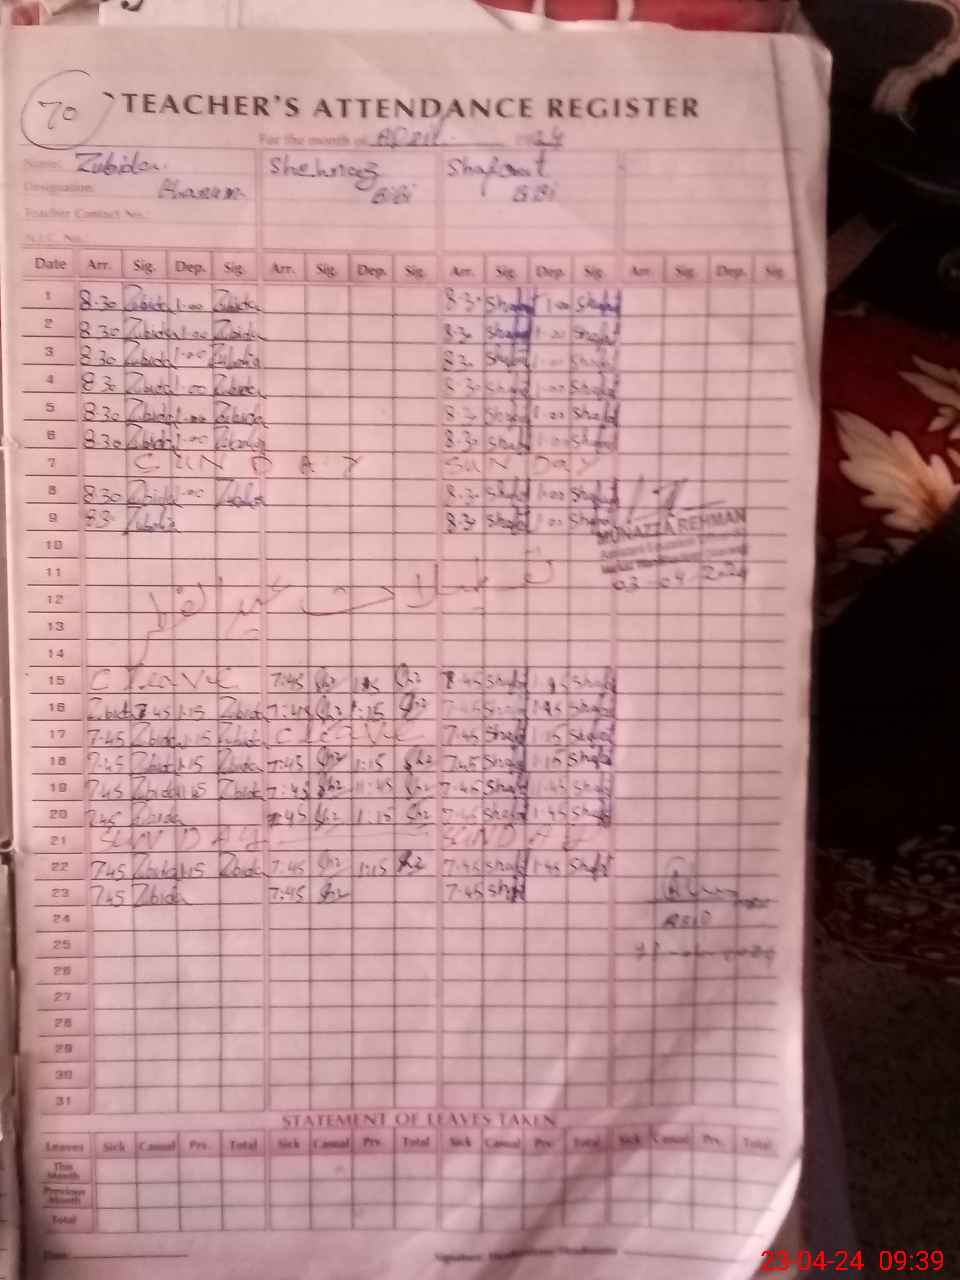 70
TEACHER'S ATTENDANCE REGISTER
For the month of April 1924
Name: Zubida Shehnaz Shafaat
Designation: Khanum BiBi BiBi
Teacher Contact No.:
N.I.C. No.:
Date Arr. Sig. Dep. Sig. Arr. Sig. Dep. Sig. Arr. Sig. Dep. Sig. Arr. Sig. Dep. Sig.
1 8.30 Zubida 1.00 Zubida 8.30 Shafat 1.00 Shafat
2 8.30 Zubida 1.00 Zubida 8.30 Shafat 1.00 Shafat
3 8.30 Zubida 1.00 Zubida 8.30 Shafat 1.00 Shafat
4 8.30 Zubida 1.00 Zubida 8.30 Shafat 1.00 Shafat
5 8.30 Zubida 1.00 Zubida 8.30 Shafat 1.00 Shafat
6 8.30 Zubida 1.00 Zubida 8.30 Shafat 1.00 Shafat
7 SUNDAY SUNDAY
8 8.30 Zubida 1.00 Zubida 8.30 Shafat 1.00 Shafat
9 8.30 Zubida 8.30 Shafat 1.00 Shafat
MUNAZZA REHMAN
10
11
03-04-2024
12
تعطیلات عید الفطر
13
14
15 C Leave 7:45 Sh2 1:15 Sh2 7.45 Shafat 1.45 Shafat
16 Zubida 7.45 1.15 Zubida 7:45 Sh2 1:15 Sh2 7.45 Shafat 1.45 Shafat
17 7.45 Zubida 1.15 Zubida C LEAVE 7.45 Shafat 1.15 Shafat
18 7.45 Zubida 1.15 Zubida 7:45 Sh2 1:15 Sh2 7.45 Shafat 1.15 Shafat
19 7.45 Zubida 11.45 Zubida 7:45 Sh2 11:45 Sh2 7.45 Shafat 11.45 Shafat
20 7.45 Zubida 7:45 Sh2 1:15 Sh2 7.45 Shafat 1.45 Shafat
21 SUNDAY SUNDAY
22 7.45 Zubida 1.15 Zubida 7:45 Sh2 1:15 Sh2 7.45 Shafat 1.45 Shafat
23 7.45 Zubida 7:45 Sh2 7.45 Shafat
24
25
26
27
28
29
30
31
STATEMENT OF LEAVES TAKEN
Leaves Sick Casual Prv. Total Sick Casual Prv. Total Sick Casual Prv. Total Sick Casual Prv. Total
This Month
Previous Month
Total
Date
23-04-24 09:39